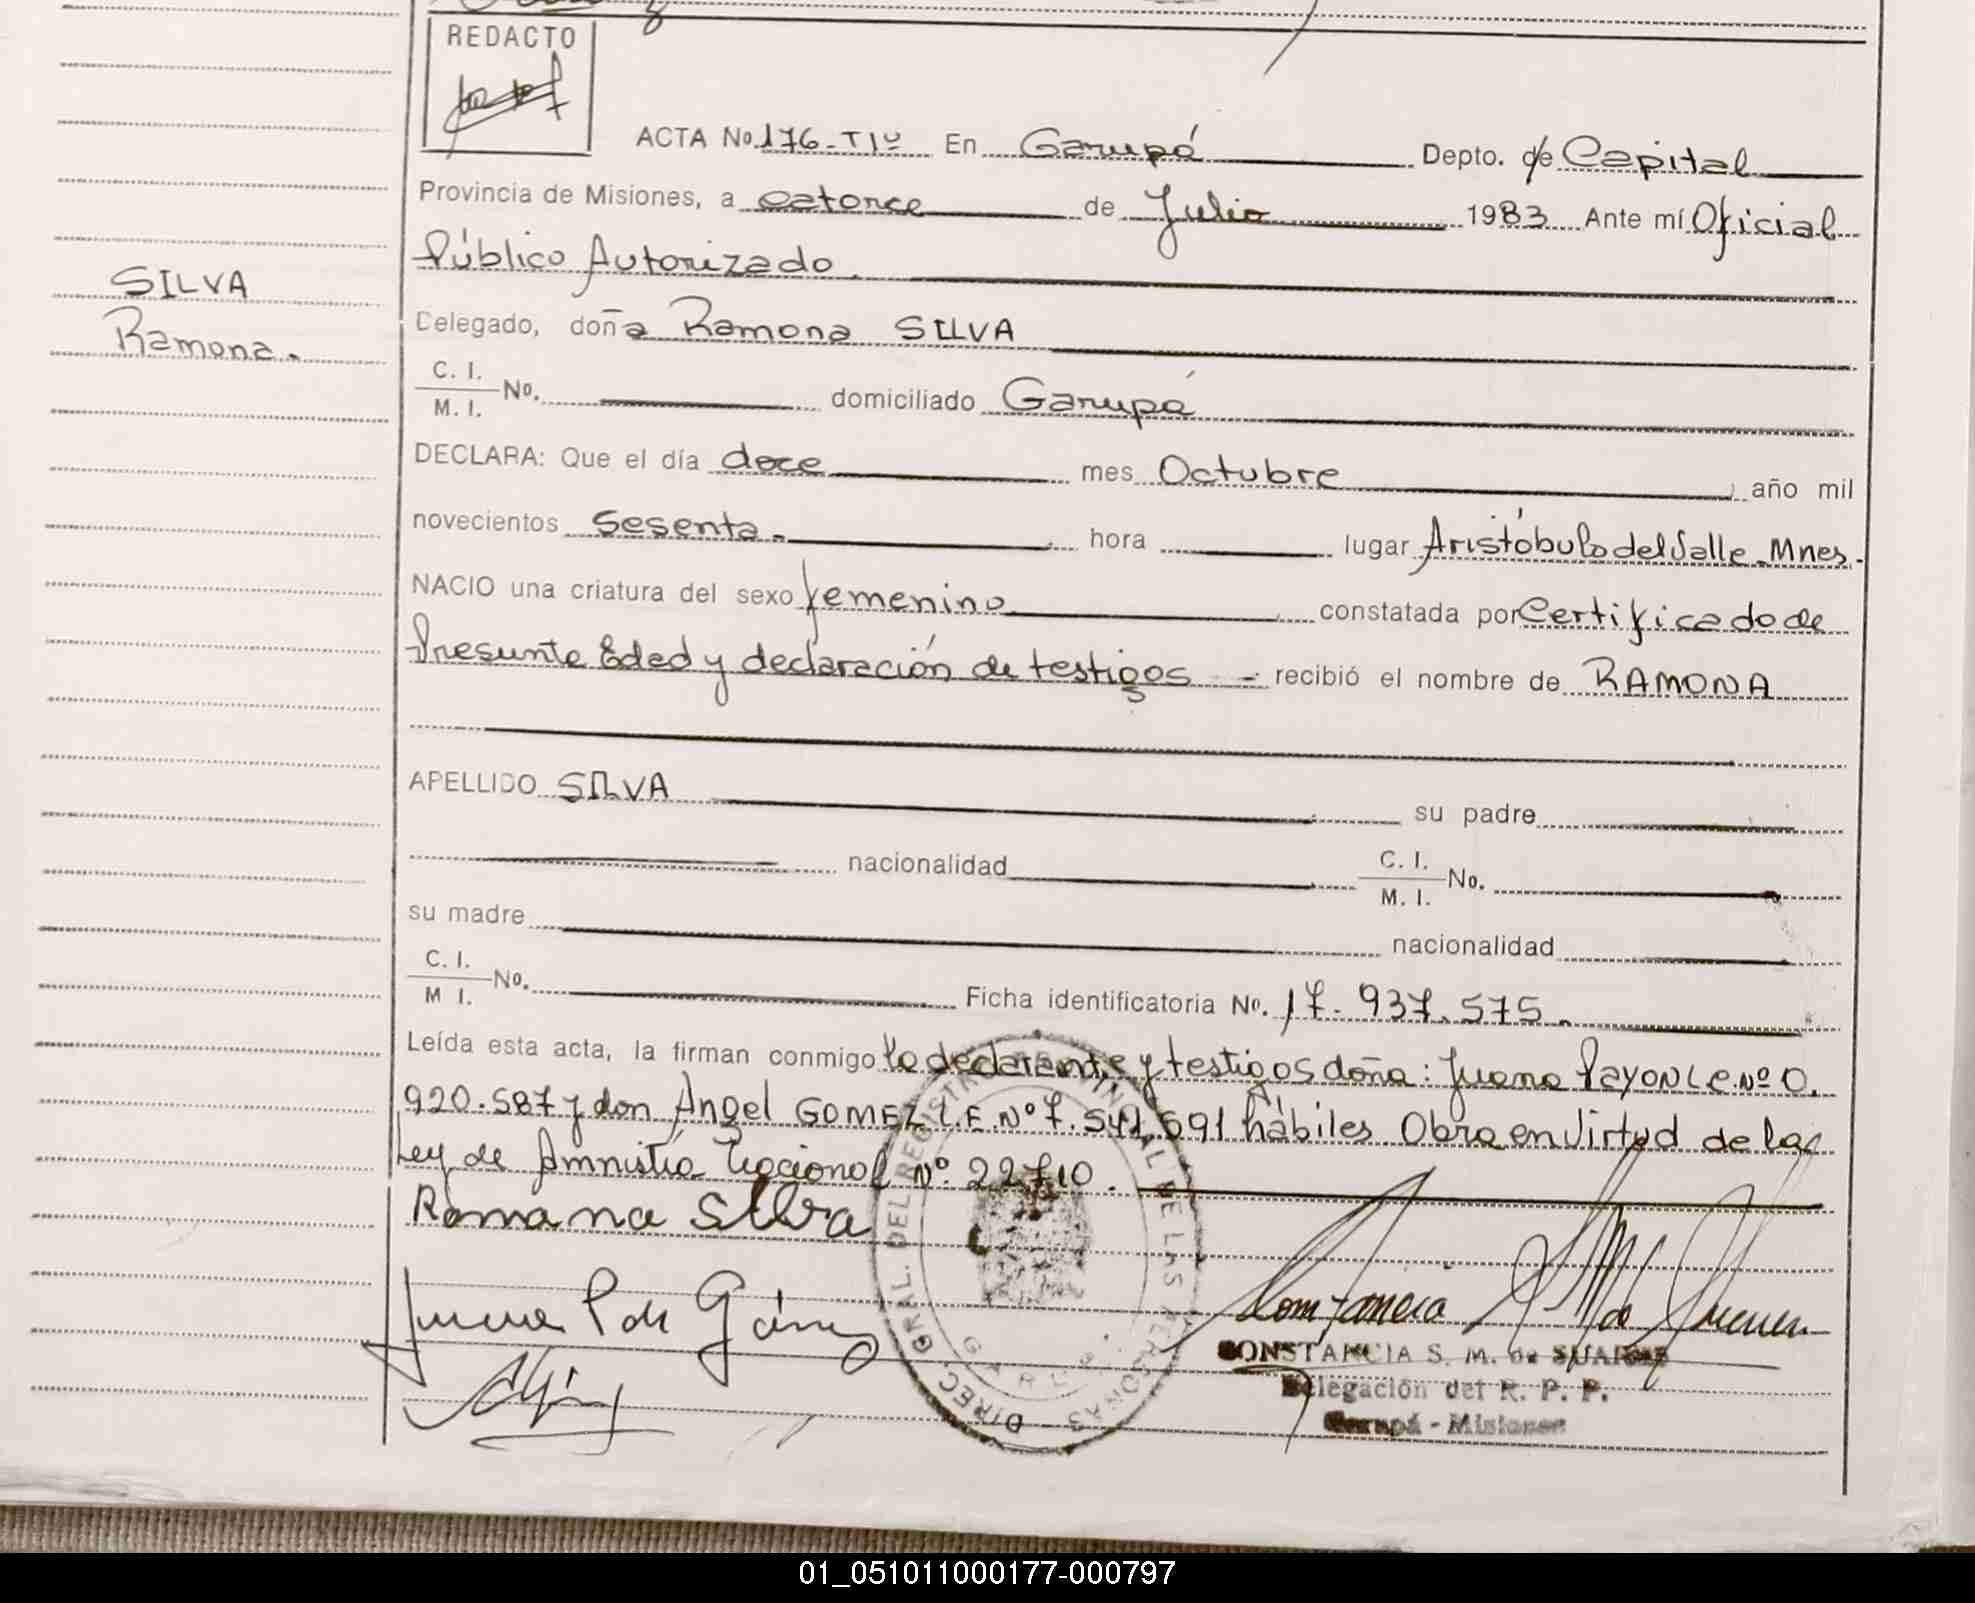 REDACTO
ACTA No. 176-T1º En Garupá Depto. de Capital
Provincia de Misiones, a catorce de Julio 1983 Ante mí Oficial
Público Autorizado.
SILVA
Ramona.
Delegado, doña Ramona SILVA
C. I.
M. I.
No. domiciliado Garupá
DECLARA: Que el día doce mes Octubre, año mil
novecientos sesenta.- hora lugar Aristóbulo del Valle - Mnes.-
NACIO una criatura del sexo femenino constatada por Certificado de
Presunta Edad y declaración de testigos - recibió el nombre de RAMONA
APELLIDO SILVA su padre
nacionalidad C. I.
M. I.
No.
su madre nacionalidad
C. I.
M I.
No. Ficha identificatoria No. 17.937.575.
Leída esta acta, la firman conmigo la declarante y testigos doña: Juana PAYON L.C. Nº 0.
920.587 y don Angel GOMEZ L.E. Nº 7.541.691 hábiles Obra en Virtud de la
Ley de Amnistía Nacional Nº 22710.
Romana silva
Juana P de Gómez
DIREC. GRAL. DEL REGISTRO PROVINCIAL DE LAS PERSONAS
CONSTANCIA S. M. de SUAREZ
Delegación del R. P. P.
Garupá - Misiones
01_051011000177-000797